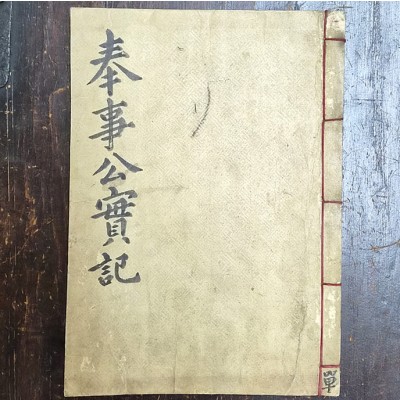 奉事公實記
單